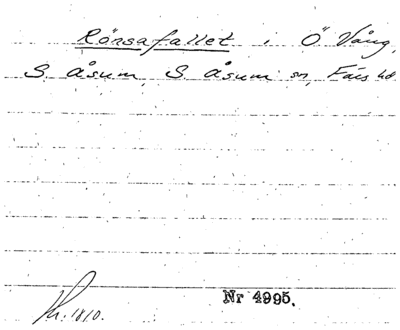 Rönsafallet i Ö Vång,
S. Åsum, S. Åsum sn, Färs hd
Nr 4995.
Kr. 1810.